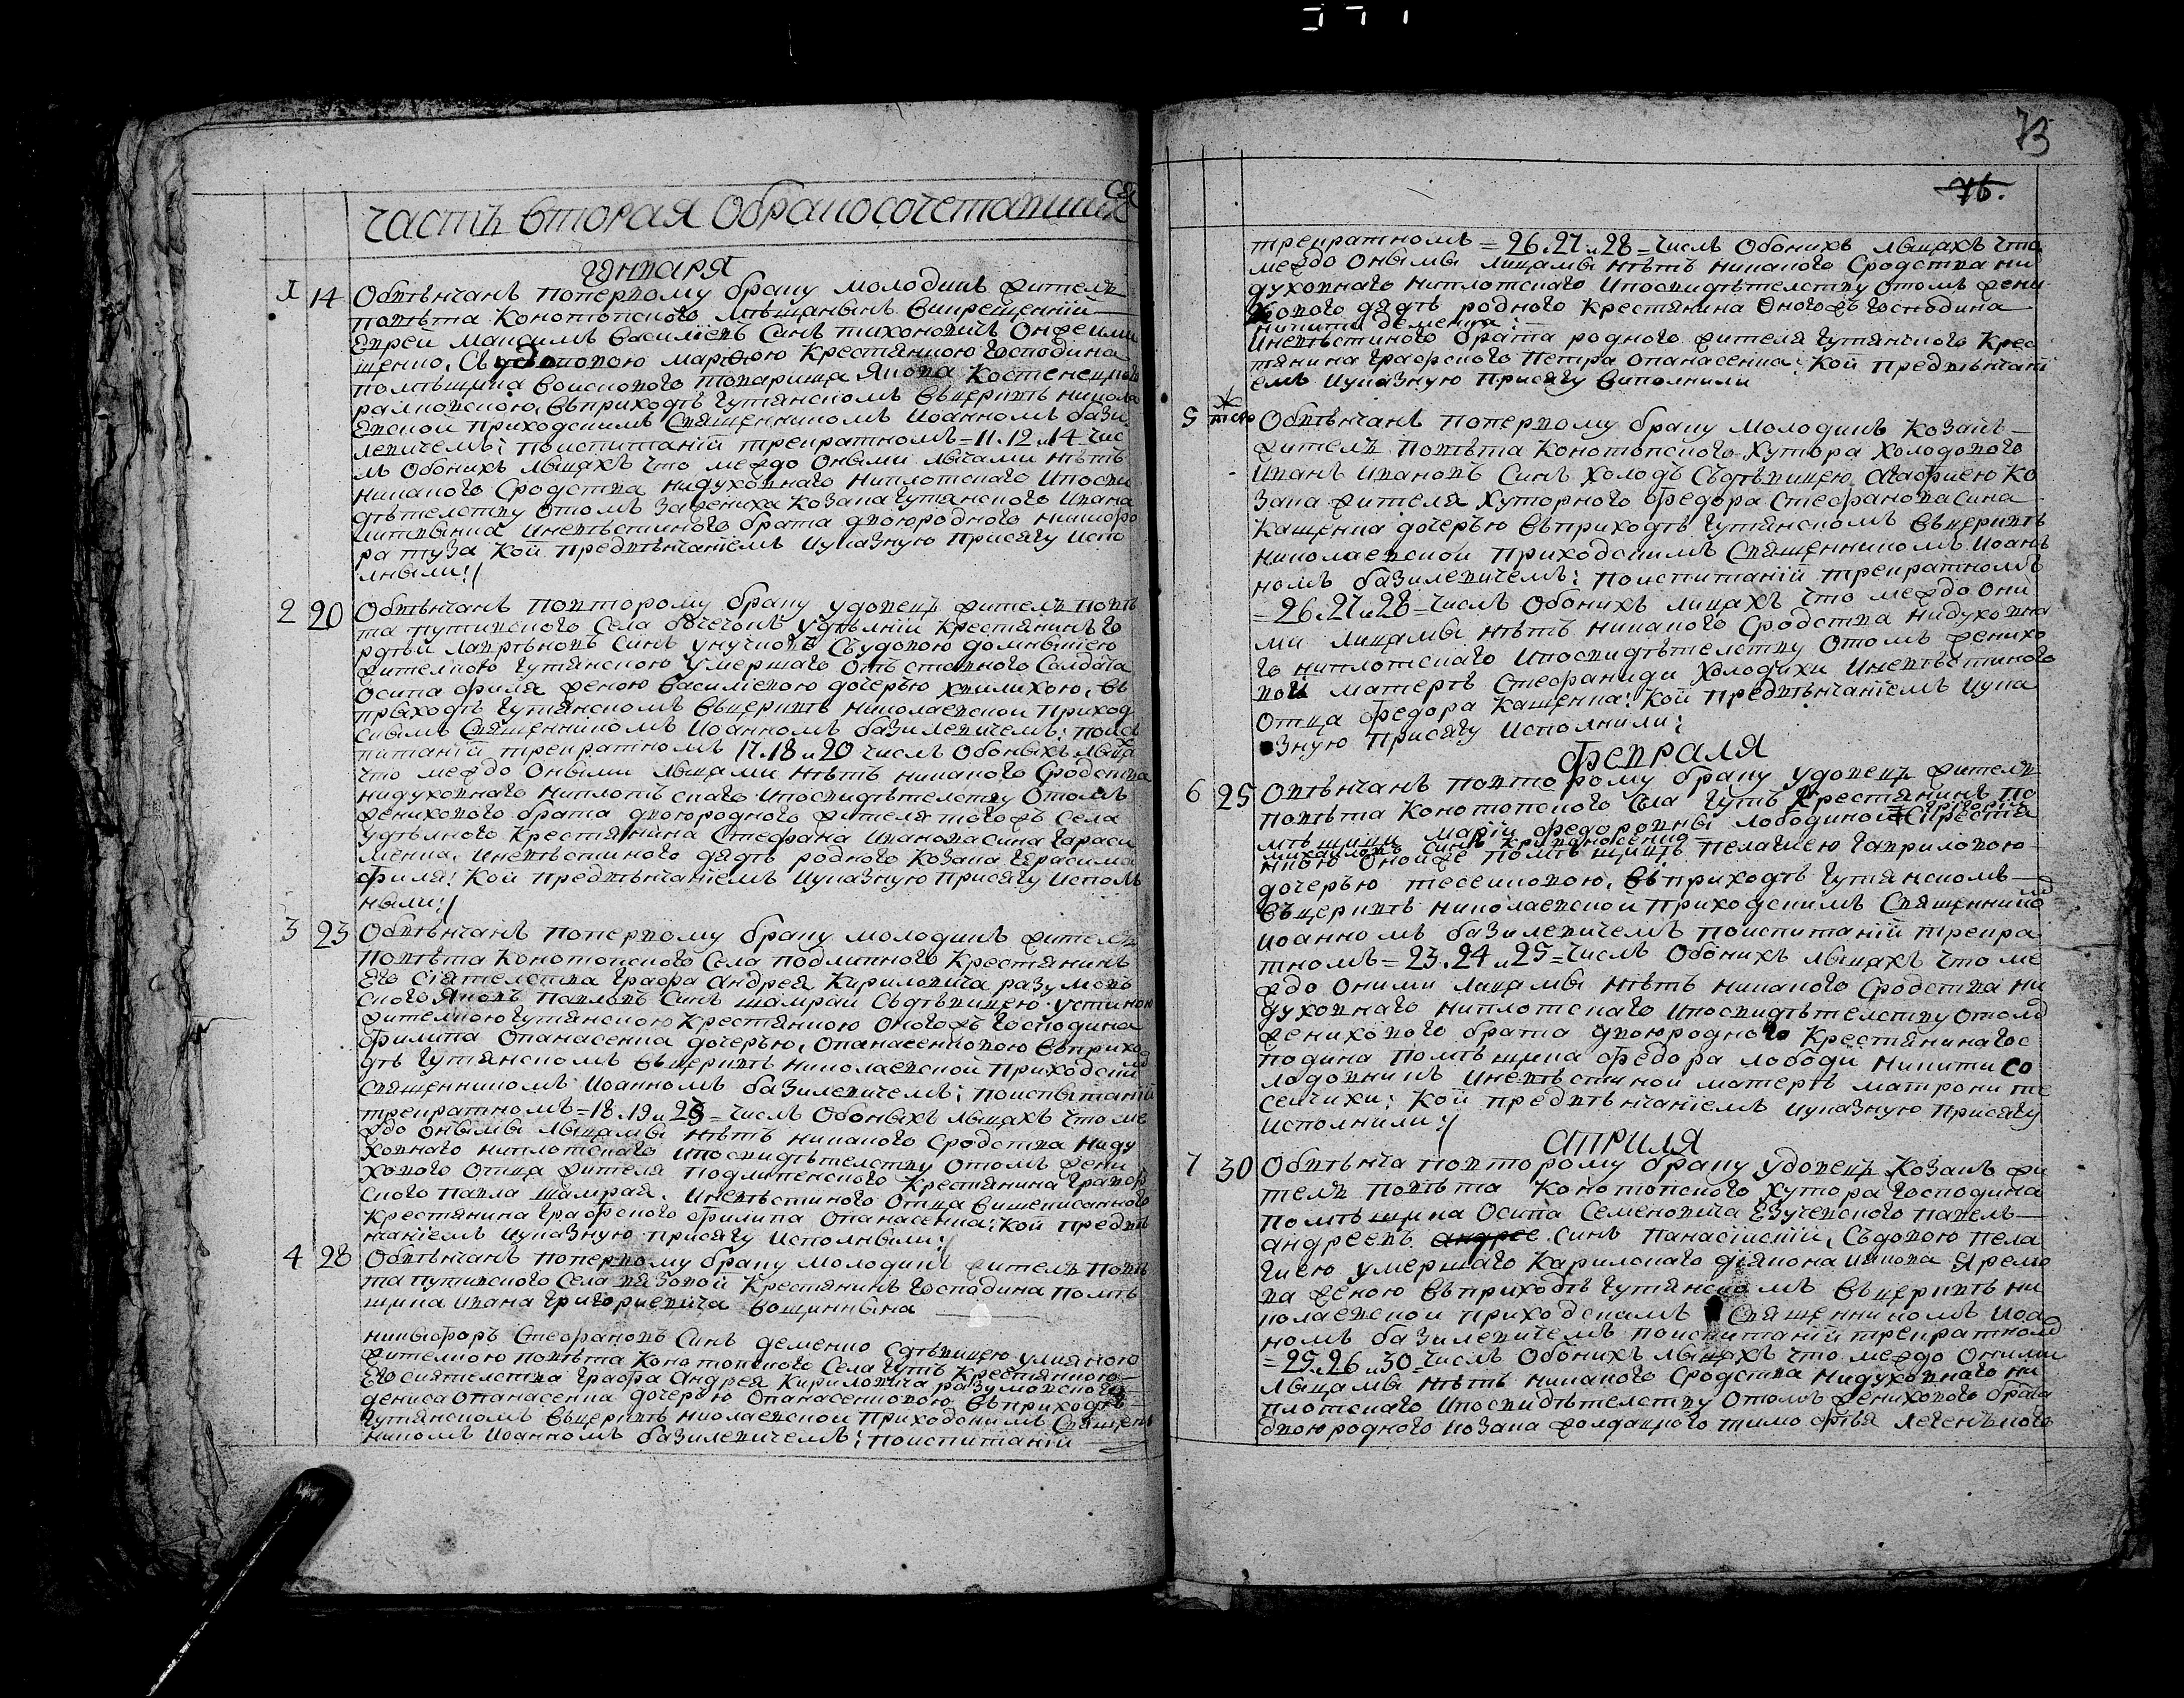 73
76.
часть вторая Обракосочетавших
ся
Генваря
1 14 Обвѣнчанъ попервому браку молодикъ жителъ
повѣта Конотопского мѣщанынъ викрещенній
Еврей Максимъ Василіевъ Синъ тихоновичъ Онъ
щенко, Съ вдовою марфою Крестянкою Господина
помѣщика воискового товарища Якова Костенецкого
вприходѣ Гутянскомъ вцерквѣ Никола
Евской приходскимъ Священникомъ Иоанномъ бази
левичемъ; поиспитаній трекратномъ = 11. 12 и 14 чис
лъ Обонихъ лыцахъ что междо Оными лыцами нѣтъ
никакого Сродства нидуховнаго ниплотскаго Ипосви
дѣтелству Отомъ Зажениха Козака Гутянского Ивана
Иневѣстиного брата двоюродного никифо
ра туза Кой предвѣнчаніемъ Иуказную присягу Испо
лныли:/
2 20 Обвѣнчанъ повторому браку удовецъ жителъ повѣ
та путивского Села Крестянинъ Го
Синъ Съудовою
жителкою Гутянскою умершаго Отъставного Салдата
Осипа филя женою василіевою дочерью хвилихою, въ
прыходѣ Гутянскомъ вьцерквѣ николаевской приход
скымъ Священникомъ Иоанномъ базилевичемъ; поис
питаній трекратномъ 17. 18 и 20 числъ Обоныхъ лыцах
что междо Оными лыцами нѣтъ никакого Сродства
нидуховнаго ниплотъскаго Ипосвидѣтелству Отомъ
женихового брата двоюродного жителя тогожъ Села
удѣлного Крестянина Стефана Ивановасина Гараси
менка. Иневѣстиного дядѣ родного Козака Герасима
филя! Кой предвѣнчаніемъ Иуказную присягу Исполъ
ныли:/
3 23 Обвѣнчанъ поперному браку молодикъ жителъ
повѣта Конотопского Села подлипного Крестянинъ
Его Сіятелства Графа Андрея Кириловича разумовъ
ского Яковъ павловъ Синъ шамрай Съдѣвицею устиною
жителкою Гутянскою Крестянкою Оногожъ Господина
филипа Опанасенка дочерью, Опанасенковою вьприхо
дѣ Гутянскомъ вьцерквѣ николаевской приходским
Священникомъ Иоанномъ базилевичемъ; поиспытаній
трекратномъ = 18. 19 и 23 = числъ Обоныхъ лыцахъ чтоме
ждо онымы лыцамы нѣтъ никакого Сродства ниду
ховнаго ниплотскаго Ипосвидѣтелству Отомъ жени
хового Отца жителя подлипенского Крестянина Графс
ского павла шамрая. Иневѣстиного Отца вишеписанного
Крестянина Графского филипа Опанасенка; Кой предвѣ
нчаніемъ Иуказную присягу Исполныли:/
4 28 Обвѣнчанъ поперному браку молодикъ жителъ повѣ
та путивского Села вязовой Крестянинъ Господина помѣ
щика Ивана Григориевича вощиннына
никыфоръ Стефановъ Синъ деменко Сдѣвицею улияною
жителкою повѣта Конотопского Села Гутъ Крестянкою
Его сиятелства Графа Андрея Кириловича разумовского
дениса Опанасенка дочерью Опанасенковою, вьприходѣ
Гутянскомъ вьцерквѣ николаевской приходскимъ Священъ
никомъ Иоанномъ базилевичемъ; поиспитаній
трекратномъ = 26. 27 и 28 = числъ Обонихъ лыцахъ что
междо Онымы лицамы нѣтъ никакого Сродства ни
духовнаго ниплотскаго Ипосвидѣтелству Отомъ жени
хового дядѣ родного Крестянина Оногожъ Господина
никити деменка;
Иневѣстиного брата родного жителя Гутянского Крес
тянина Графского Петра Опанасенка; Кой предвѣнчані
емъ Иуказную присягу виполнили
5 Обвѣнчанъ поперному браку Молодикъ Козакъ
жителъ повѣта Конотопского Хутора Холодового
Иванъ Ивановъ Синъ Холодъ Съдѣвицею Агафиею Ко
Зака жителя Хуторного Федора Стефановасина
Кащенка дочерью вьприходѣ Гутянскомъ вьцерквѣ
николаевской приходскимъ Священникомъ Иоанъ
номъ базилевичемъ; поиспитаній трекратномъ
= 26. 27 и 28 = числъ Обонихъ лицахъ что междо Они
ми лицамы нѣтъ никакого Сродства нидуховна
го ниплотскаго Ипосвидѣтелству Отомъ женихо
вой матерѣ Стефаниди Холодихи Иневѣстиного
Отца федора Кащенка! Кой предвѣнчаніемъ Иука
зную присягу Исполнили;
февраля
6 25 Овѣнчанъ повторому браку удовецъ жителъ
повѣта Конотопского Села Гутъ Крестянинъ по
мѣщици маріи федоровны лободиной Григорій
михайловъ Синъ Крестя
нкою Онойже помѣщицѣ пелагиею Гавриловою
дочерью тесейковою, вьприходѣ Гутянскомъ
въцерквѣ николаевской приходскимъ Священником
Иоанномъ базилевичемъ поиспитаній трекра
тномъ = 23. 24 и 25 = числъ Обонихъ лыцахъ что ме
ждо Оними лицамы нѣтъ никакого Сродства ни
духовнаго ниплотскаго Ипосвидѣтелству отом
женихового брата двоюродного Крестянина Гос
подина помѣщика федора лободи никити Со
лодовника Иневѣстиной матерѣ матрони те
сейчихи; Кой предвѣнчаніемъ Иуказную присягу
Исполнили:/
Априля
7 30 Обвѣнча повторому браку удовецъ Козакъ жи
телъ повѣта Конотопского Хутора Господина
помѣщика Осипа Семеновича Езучевского павелъ
андреевъ Синъ Панасінскій, Съдовою пела
гиею умершаго Карилскаго діякона Иякова Яремо
ва женою вьприходѣ Гутянскомъ вьцерквѣ ни
колаевской приходскимъ Священникомъ Иоа
номъ базилевичемъ поиспитаній трекратном
= 25. 26 и 30 = числъ Обонихъ лыцахъ что междо Оними
лыцамы нѣтъ никакого Сродства нидуховнаго ни
плотскаго Ипосвидѣтелству Отомъ женихового брата
двоюродного козака жолдацкого тимофѣя